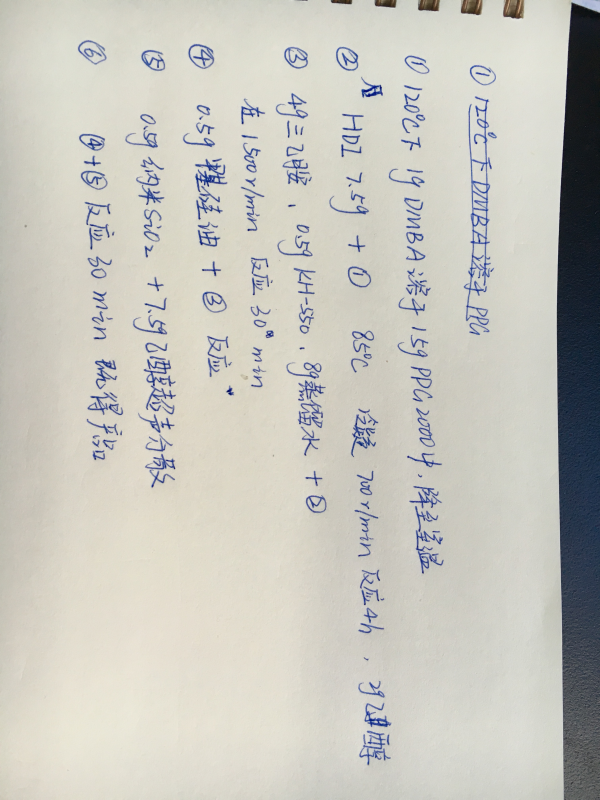 ① 120℃下DMBA溶于PPG
① 120℃下 1g DMBA 溶于 15g PPG2000中，降至室温
② HDI 7.5g + ① 85℃ 冷凝 700r/min 反应4h，2g乙醇
③ 4g三乙胺、0.5g KH-550、8g蒸馏水 + ②
在1500r/min 反应 30 min
④ 0.5g 硅油 + ③ 反应
⑤ 0.5g 纳米SiO2 + 7.5g乙醇超声分散
⑥ ④+⑤ 反应 30 min 得产品